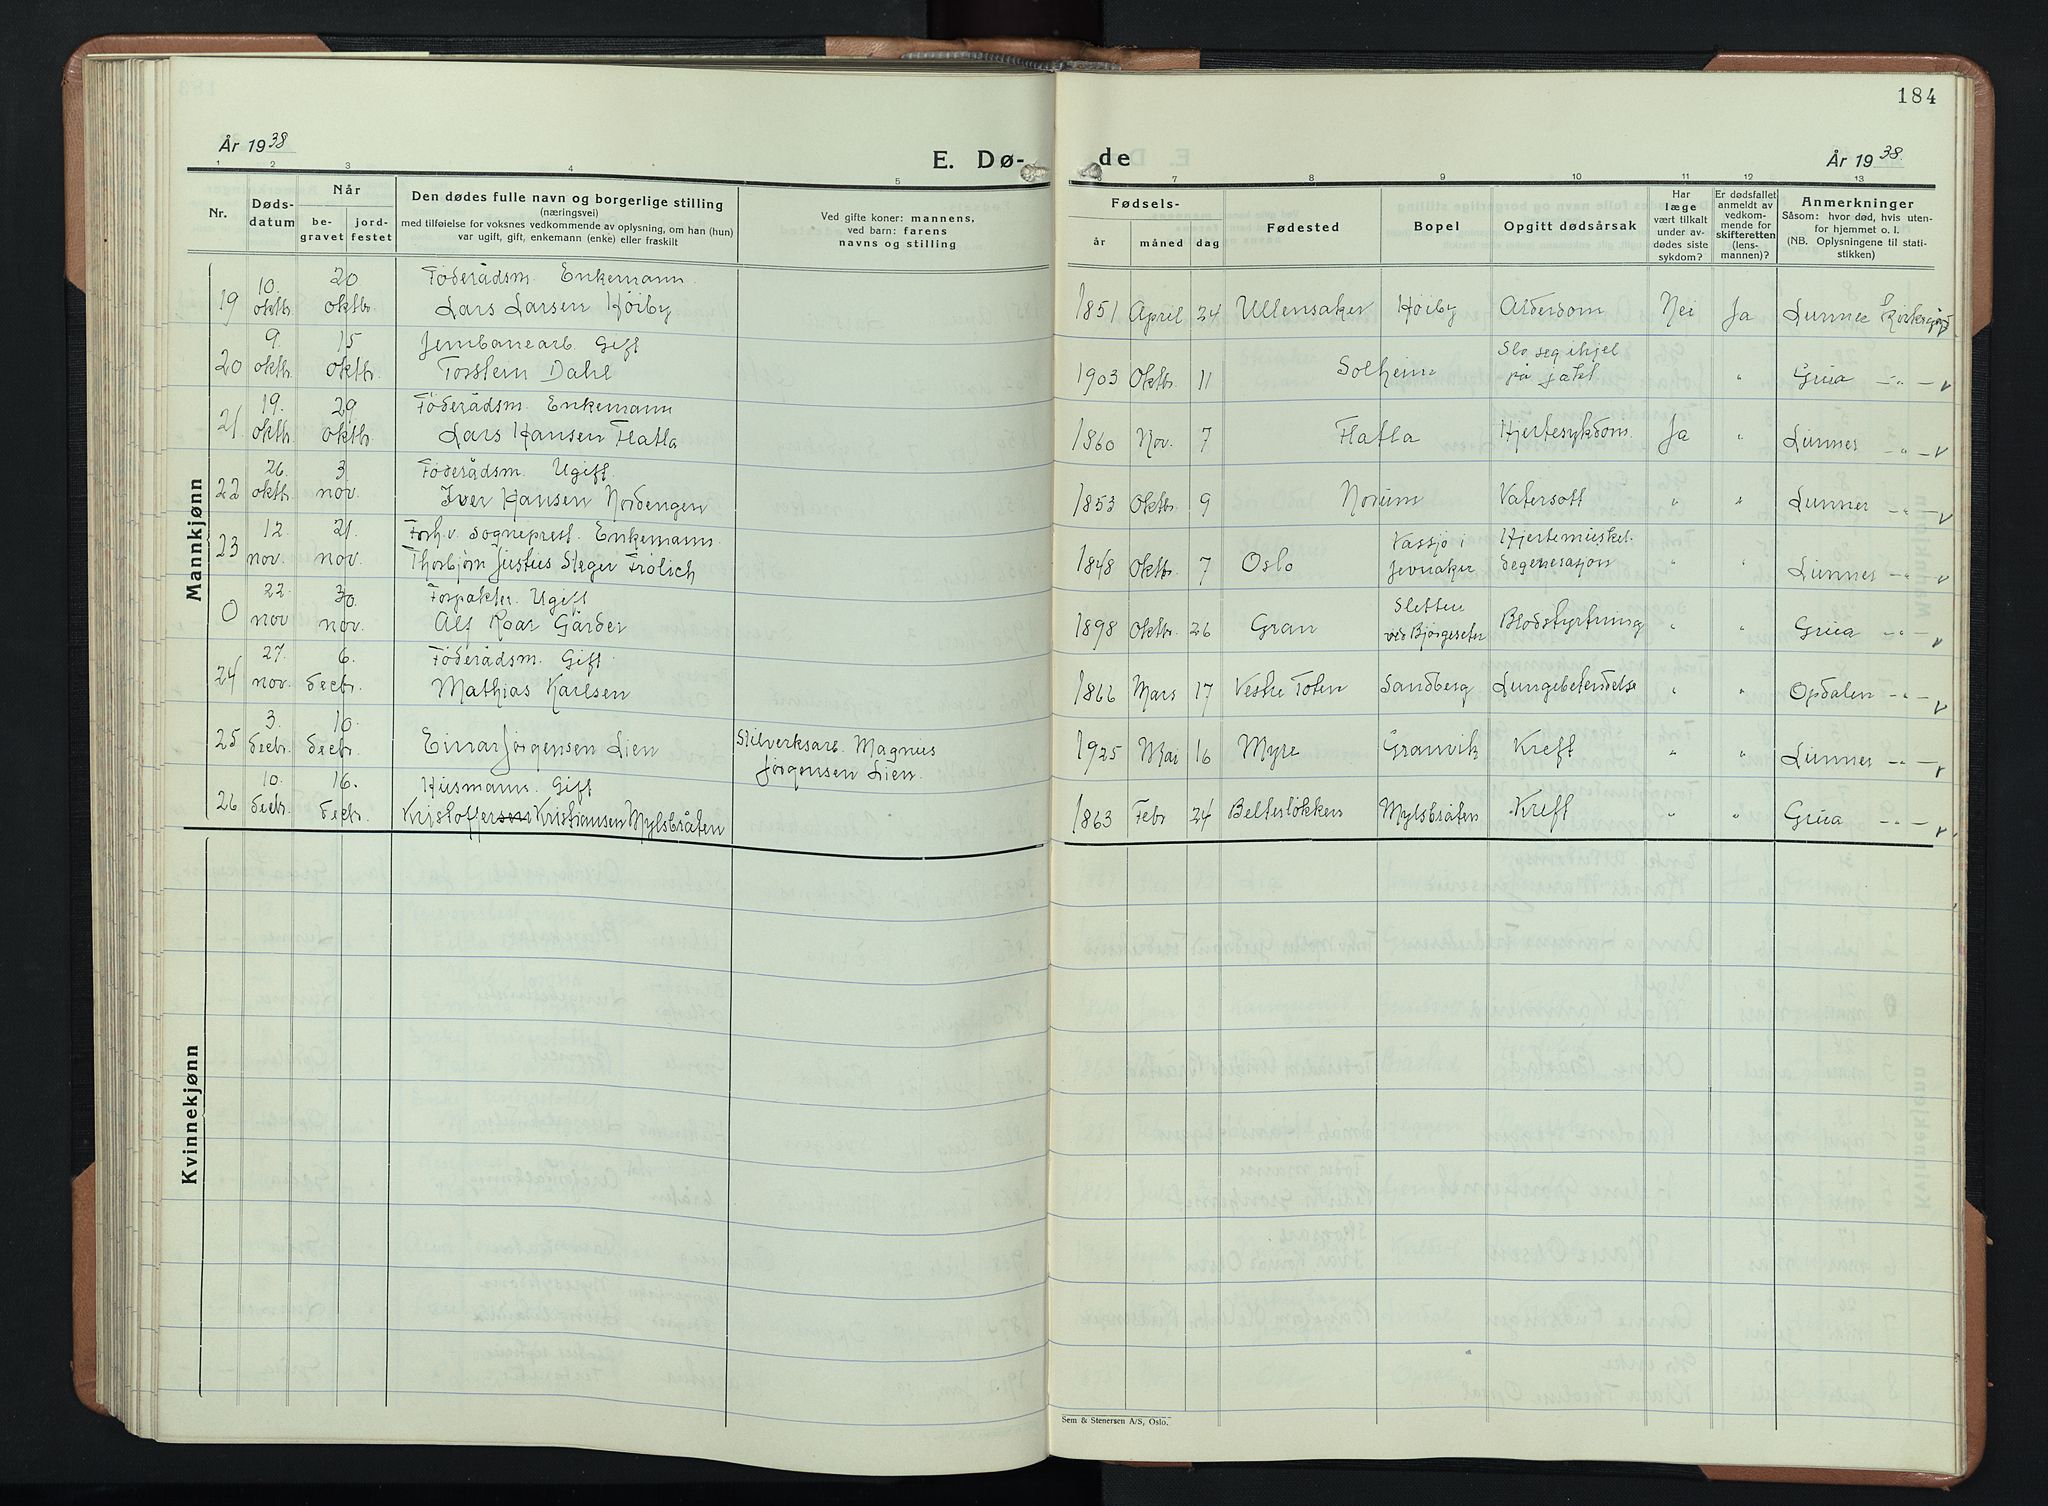 184
År 1938
E. Dø-
de
År 1938.
1 2 3 4 5
7 8 9 10 11 12 13
Nr.
Døds-
datum
Når
be-
gravet
jord-
festet
Den dødes fulle navn og borgerlige stilling
(næringsvei)
med tilføielse for voksnes vedkommende av oplysning, om han (hun)
var ugift, gift, enkemann (enke) eller fraskilt
Ved gifte koner: mannens,
ved barn: farens
navns og stilling
Fødsels-
år
måned
dag
Fødested
Bopel
Opgitt dødsårsak
Har
læge
vært tilkalt
under av-
dødes siste
sykdom?
Er dødsfallet
anmeldt av
vedkom-
mende for
skifteretten
(lens-
mannen)?
Anmerkninger
Såsom: hvor død, hvis uten-
for hjemmet o. l.
(NB. Oplysningene til stati-
stikken)
Mannkjønn
10. 20 Föderådsm. Enkemann.
19 oktb. oktb. Lars Larsen Höiby 1851 April 24 Ullensaker Höiby Alderdom Nei Ja Lunner Kirkegård
9. 15 Jernbanearb. Gift Slo seg ihjel
20 oktb. oktb. Torstein Dahl 1903 Oktb. 11 Solheim på jakt " Grua -"-
19. 29 Föderådsm. Enkemann
21 oktb. oktb. Lars Hansen Flatla 1860 Nov. 7 Flatla Hjertesykdom. Ja " Lunner -"-
26. 3 Föderådsm. Ugift.
22 oktb. nov. Iver Hansen Nordengen 1853 Oktb. 9 Norum Vatersott " " Lunner -"-
12 21. Forh.v. sogneprest. Enkemann. Vassjö i Hjertemuskel-
23 nov. nov. Thorbjörn Justus Steger Frölich 1848 Oktb. 7 Oslo Jevnaker degenerasjon " " Lunner -"-
22 30. Forpakter. Ugift Sletten
0 nov nov. Alf Roar Gårder 1898 Oktb. 26 Gran ved Bjørgeseter Blodstyrtning " " Grua -"-
27. 6. Föderådsm. Gift.
24 nov. decbr. Mathias Karlsen 1866 Mars 17 Vestre Toten Sandberg Lungebetendelse " " Opdalen -"-
3. 10. Stilverksarb. Magnus
25 decbr. decbr. Einar Jörgensen Lien Jörgensen Lien. 1925 Mai 16 Myre Granvik Kreft " " Lunner -"-
10. 16. Husmann. Gift
26 decbr. decbr. Kristoffersen Kristiansen Mylsbråten 1863 Febr 24 Belterlökken Mylsbråten Kreft " " Grua -"-
Kvinnekjønn
Sem & Stenersen A/S, Oslo.